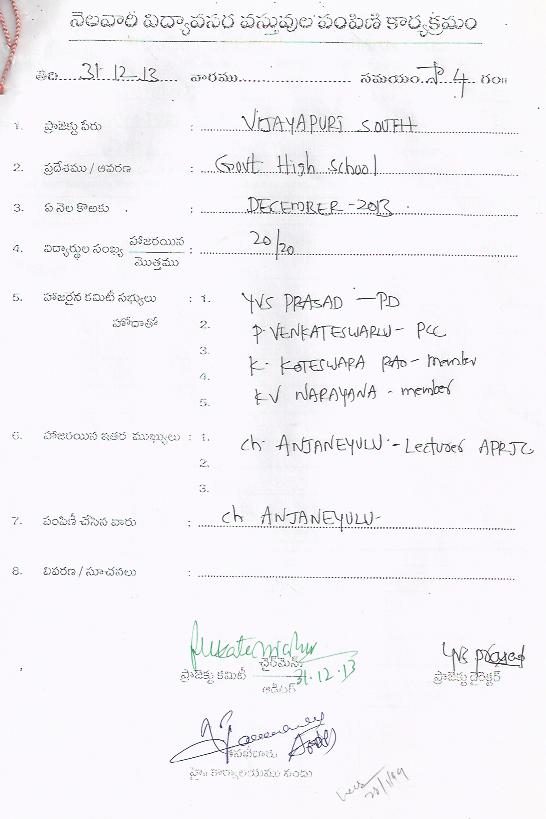 నెలవారీ విద్యావసర వస్తువుల పంపిణీ కార్యక్రమం
తేది 31-12-13 వారము సమయం సా 4 గం॥
1. ప్రాజెక్టు పేరు : VIJAYAPURI SOUTH
2. ప్రదేశము / ఆవరణ : Govt High School
3. ఏ నెల కొఱకు : DECEMBER -2013
4. విద్యార్థుల సంఖ్య హాజరయిన : 20/20
మొత్తము
5. హాజరైన కమిటీ సభ్యులు : 1. YVS PRASAD - PD
హోదాతో 2. P. VENKATESWARLU - PCC
3.
4. K. KOTESWARA RAO - Member
5. KV NARAYANA - member
6. హాజరయిన ఇతర ముఖ్యులు : 1. Ch. ANJANEYULU - Lecturer APRJC
2.
3.
7. పంపిణీ చేసిన వారు : Ch ANJANEYULU
8. వివరణ / సూచనలు :
ఛైర్మెన్
ప్రాజెక్టు కమిటీ 31.12.13 ప్రాజెక్టు డైరెక్టర్
ఆడిటర్
హైదరాబాదు